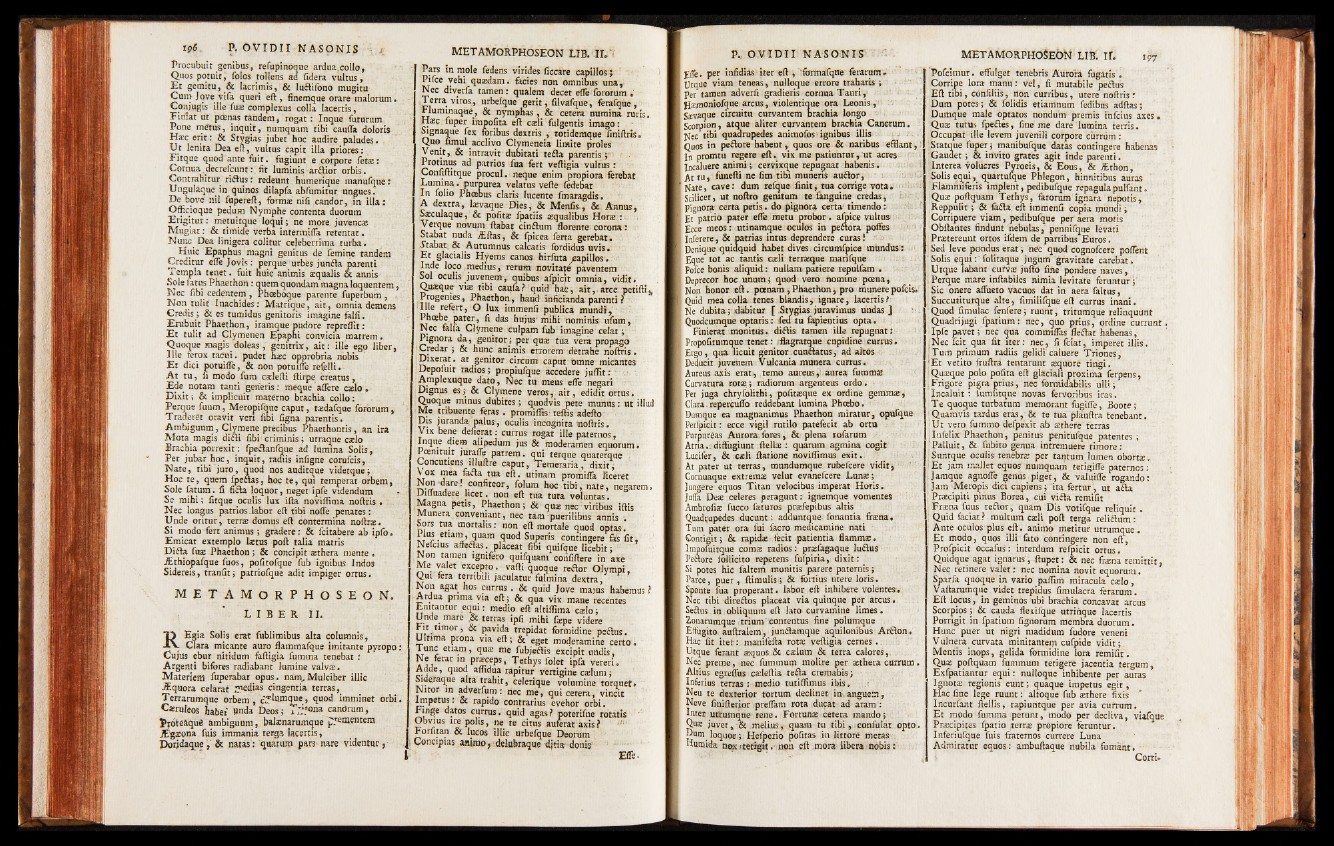 196 P. OVIDII NASONIS
Procubuit genibus, reſupinoque ardua collo,
Quos potuit, ſolos tollens ad ſidera vultus,
Et gemitu, & lacrimis, & luctiſono mugitu
Cum Jove viſa queri eſt, finemque orare malorum.
Conjugis ille ſuæ complexus colla lacertis,
Finiat ut pœnas tandem, rogat: Inque futurum
Pone metus, inquit, numquam tibi cauſſa doloris
Hæc erit: & Stygias jubet hoc audire paludes.
Ut lenita Dea eſt, vultus capit illa priores:
Fitque quod ante fuit. fugiunt e corpore ſetæ:
Cornua decreſcunt: fit luminis arctior orbis.
Contrahitur rictus: redeunt humerique manuſque:
Ungulaque in quinos dilapſa abſumitur ungues.
De bove nil ſupereſt, formæ niſi candor, in illa:
Officioque pedum Nymphe contenta duorum
Erigitur: metuitque loqui; ne more juvencæ
Mugiat: & timide verba intermiſſa retentat.
Nunc Dea linigera colitur celeberrima turba.
Huic Epaphus magni genitus de ſemine tandem
Creditur eſſe Jovis: perque urbes juncta parenti
Templa tenet. fuit huic animis æqualis & annis
Sole ſatus Phaethon: quem quondam magna loquentem,
Nec ſibi cedentem, Phœbòque parente ſuperbum,
Non tulit Inachides: Matrique, ait, omnia demens
Credis; & es tumidus genitoris imagine falſi.
Erubuit Phaethon, iramque pudore repreſſit:
Et tulit ad Clymenen Epaphi convicia matrem.
Quoque magis doleas, genitrix, ait: ille ego liber,
Ille ferox tacui. pudet hæc opprobria nobis
Et dici potuiſſe, & non potuiſſe refelli.
At tu, ſi modo ſum cæleſti ſtirpe creatus,
Ede notam tanti generis: meque aſſere cælo.
Dixit; & implicuit materno brachia collo:
Perque ſuum, Meropiſque caput, tædaſque ſororum,
Traderet oravit veri ſibi ſigna parentis.
Ambiguum, Clymene precibus Phaethontis, an ira
Mota magis dicti ſibi criminis; utraque cælo
Brachia porrexit: ſpectanſque ad lumina Solis,
Per jubar hoc, inquit, radiis inſigne coruſcis,
Nate, tibi juro, quod nos auditque videtque;
Hoc te, quem ſpectas, hoc te, qui temperat orbem,
Sole ſatum. ſi ficta loquor, neget ipſe videndum
Se mihi; ſitque oculis lux iſta noviſſima noſtris.
Nec longus patrios labor eſt tibi noſſe penates:
Unde oritur, terræ domus eſt contermina noſtræ.
Si modo fert animus; gradere: & ſcitabere ab ipſo.
Emicat extemplo lætus poſt talia matris
Dicta ſuæ Phaethon; & concipit æthera mente.
Æthiopaſque ſuos, poſitoſque ſub ignibus Indos
Sidereis, tranſit; patrioſque adit impiger ortus.
METAMORPHOSEON.
LIBER II.
REgia Solis erat ſublimibus alta columnis,
Clara micante auro flammaſque imitante pyropo:
Cujus ebur nitidum faſtigia ſumma tenebat:
Argenti bifores radiabant lumine valvæ.
Materiem ſuperabat opus. nam, Mulciber illic
Æquora celarat medias cingentia terras,
Terrarumque orbem, cælumque, quod imminet orbi.
Cæruleos habet unda Deos; Tritona canorum,
Proteaque ambiguum, balænarumque prementem
Ægæona ſuis immania terga lacertis,
Doridaque, & natas: quarum pars nare videntur,
METAMORPHOSEON LIB. II.
Pars in mole ſedens virides ſiccare capillos;
Piſce vehi quædam. facies non omnibus una,
Nec diverſa tamen: qualem decet eſſe ſororum.
Terra viros, urbeſque gerit, ſilvaſque, feraſque,
Fluminaque, & nymphas, & cetera numina ruris.
Hæc ſuper impoſita eſt cæli fulgentis imago:
Signaque ſex foribus dextris, totidemque ſiniſtris.
Quo ſimul acclivo Clymeneia limite proles
Venit, & intravit dubitati tecta parentis;
Protinus ad patrios ſua fert veſtigia vultus:
Conſiſtitque procul. neque enim propiora ferebat
Lumina. purpurea velatus veſte ſedebat
In ſolio Phœbus claris lucente ſmaragdis.
A dextra, lævaque Dies, & Menſis, & Annus,
Sæculaque, & poſitæ ſpatiis æqualibus Horæ:
Verque novum ſtabat cinctum florente corona:
Stabat nuda Æſtas, & ſpicea ſerta gerebat.
Stabat & Autumnus calcatis ſordidus uvis.
Et glacialis Hyems canos hirſuta capillos.
Inde loco medius, rerum novitate paventem
Sol oculis juvenem, quibus aſpicit omnia, vidit.
Quæque viæ tibi cauſa? quid hac, ait, arce petiſti,
Progenies, Phaethon, haud inficianda parenti?
Ille refert, O lux immenſi publica mundi,
Phœbe pater, ſi das hujus mihi nominis uſum,
Nec falſa Clymene culpam ſub imagine celat;
Pignora da, genitor; per quæ tua vera propago
Credar; & hunc animis errorem detrahe noſtris.
Dixerat. at genitor circum caput omne micantes
Depoſuit radios; propiuſque accedere juſſit:
Amplexuque dato, Nec tu meus eſſe negari
Dignus es; & Clymene veros, ait, edidit ortus.
Quoque minus dubites; quodvis pete munus: ut illud
Me tribuente feras. promiſſis teſtis adeſto
Dis juranda palus, oculis incognita noſtris.
Vix bene deſierat: currus rogat ille paternos,
Inque diem alipedum jus & moderamen equorum.
Pœnituit juraſſe patrem. qui terque quaterque
Concutiens illuſtre caput, Temeraria, dixit,
Vox mea facta tua eſt. utinam promiſſa liceret
Non dare! confiteor, ſolum hoc tibi, nate, negarem.
Diſſuadere licet. non eſt tua tuta voluntas.
Magna petis, Phaethon; & quæ nec viribus iſtis
Munera conveniant, nec tam puerilibus annis.
Sors tua mortalis: non eſt mortale quod optas.
Plus etiam, quam quod Superis contingere fas ſit,
Neſcius affectas. placeat ſibi quiſque licebit;
Non tamen ignifero quiſquam conſiſtere in axe
Me valet excepto. vaſti quoque rector Olympi,
Qui fera terribili jaculatur fulmina dextra,
Non agat hos currus. & quid Jove majus habemus?
Ardua prima via eſt; & qua vix mane recentes
Enitantur equi: medio eſt altiſſima cælo;
Unde mare & terras ipſi mihi ſæpe videre
Fit timor, & pavida trepidat formidine pectus.
Ultima prona via eſt; & eget moderamine certo.
Tunc etiam, quæ me ſubjectis excipit undis,
Ne ferar in præceps, Tethys ſolet ipſa vereri.
Adde, quod aſſidua rapitur vertigine cælum;
Sideraque alta trahit, celerique volumine torquet.
Nitor in adverſum: nec me, qui cetera, vincit
Impetus: & rapido contrarius evehor orbi.
Finge datos currus. quid agas? poteriſne rotatis
Obvius ire polis, ne te citus auferat axis?
Forſitan & lucos illic urbeſque Deorum
Concipias animo, delubraque ditia donis
Eſſe.
P. OVIDII NASONIS
Eſſe. per inſidias iter eſt, formaſque ferarum.
Utque viam teneas, nulloque errore traharis;
Per tamen adverſi gradieris cornua Tauri,
Hæmonioſque arcus, violentique ora Leonis,
Sævaque circuitu curvantem brachia longo
Scorpion, atque aliter curvantem brachia Cancrum.
Nec tibi quadrupedes animoſos ignibus illis
Quos in pectore habent, quos ore & naribus efflant,
In promtu regere eſt. vix me patiuntur, ut acres
Incaluere animi; cervixque repugnat habenis.
At tu, funeſti ne ſim tibi muneris auctor,
Nate, cave: dum reſque ſinit, tua corrige vota.
Scilicet, ut noſtro genitum te ſanguine credas,
Pignora certa petis. do pignora certa timendo:
Et patrio pater eſſe metu probor. aſpice vultus
Ecce meos: utinamque oculos in pectora poſſes
Inſerere, & patrias intus deprendere curas!
Denique quidquid habet dives circumſpice mundus:
Eque tot ac tantis cæli terræque mariſque
Poſce bonis aliquid: nullam patiere repulſam.
Deprecor hoc unum; quod vero nomine pœna,
Non honor eſt. pœnam, Phaethon, pro munere poſcis.
Quid mea colla tenes blandis, ignare, lacertis?
Ne dubita; dabitur [Stygias juravimus undas]
Quodcumque optaris: ſed tu ſapientius opta.
Finierat monitus. dictis tamen ille repugnat:
Propoſitumque tenet: flagratque cupidine currus.
Ergo, qua licuit genitor cunctatus, ad altos
Deducit juvenem Vulcania munera currus.
Aureus axis erat, temo aureus, aurea ſummæ
Curvatura rotæ; radiorum argenteus ordo.
Per juga chryſolithi, poſitæque ex ordine gemmæ,
Clara repercuſſo reddebant lumina Phœbo.
Dumque ea magnanimus Phaethon miratur, opuſque
Perſpicit: ecce vigil rutilo patefecit ab ortu
Purpureas Aurora fores, & plena roſarum
Atria. diffugiunt ſtellæ: quarum agmina cogit
Lucifer, & cæli ſtatione noviſſimus exit.
At pater ut terras, mundumque rubeſcere vidit,
Cornuaque extremæ velut evaneſcere Lunæ;
Jungere equos Titan velocibus imperat Horis.
Juſſa Deæ celeres peragunt: ignemque vomentes
Ambroſiæ ſucco ſaturos præſepibus altis
Quadrupedes ducunt: adduntque ſonantia fræna.
Tum pater ora ſui ſacro medicamine nati
Contigit; & rapidæ fecit patientia flammæ.
Impoſuitque comæ radios: præſagaque luctus
Pectore ſollicito repetens ſuſpiria, dixit:
Si potes hic ſaltem monitis parere paternis;
Parce, puer, ſtimulis; & fortius utere loris.
Sponte ſua properant. labor eſt inhibere volentes.
Nec tibi directos placeat via quinque per arcus.
Sectus in obliquum eſt lato curvamine limes.
Zonarumque trium contentus fine polumque
Effugito auſtralem, junctamque aquilonibus Arcton.
Hac ſit iter: manifeſta rotæ veſtigia cernes.
Utque ferant æquos & cælum & terra calores,
Nec preme, nec ſummum molire per æthera currum.
Altius egreſſus cæleſtia tecta cremabis;
Inferius terras: medio tutiſſimus ibis.
Neu te dexterior tortum declinet in anguem,
Neve ſiniſterior preſſam rota ducat ad aram:
Inter utrumque tene. Fortunæ cetera mando;
Quæ juvet, & melius, quam tu tibi, conſulat opto.
Dum loquor; Heſperio poſitas in littore metas
Humida nox tetigit. non eſt mora libera nobis:
METAMORPHOSEON LIB. II. 197
Poſcimur. effulget tenebris Aurora fugatis.
Corripe lora manu: vel, ſi mutabile pectus
Eſt tibi, conſiliis, non curribus, utere noſtris:
Dum potes; & ſolidis etiamnum ſedibus adſtas;
Dumque male optatos nondum premis inſcius axes.
Quæ tutus ſpectes, ſine me dare lumina terris.
Occupat ille levem juvenili corpore currum:
Statque ſuper; manibuſque datas contingere habenas
Gaudet; & invito grates agit inde parenti.
Interea volucres Pyroeis, & Eous, & Æthon,
Solis equi, quartuſque Phlegon, hinnitibus auras
Flammiferis implent, pedibuſque repagula pulſant.
Quæ poſtquam Tethys, fatorum ignara nepotis,
Reppulit; & facta eſt immenſi copia mundi;
Corripuere viam, pedibuſque per aera motis
Obſtantes findunt nebulas, penniſque levati
Prætereunt ortos iſdem de partibus Euros.
Sed leve pondus erat, nec quod cognoſcere poſſent
Solis equi: ſolitaque jugum gravitate carebat.
Utque labant curvæ juſto ſine pondere naves,
Perque mare inſtabiles nimia levitate feruntur;
Sic onere aſſueto vacuos dat in aera ſaltus,
Succutiturque alte, ſimiliſque eſt currus inani.
Quod ſimulac ſenſere; ruunt, tritumque relinquunt
Quadrijugi ſpatium: nec, quo prius, ordine currunt.
Ipſe pavet; nec qua commiſſas flectat habenas,
Nec ſcit qua ſit iter: nec, ſi ſciat, imperet illis.
Tum primum radiis gelidi caluere Triones,
Et vetito fruſtra tentarunt æquore tingi.
Quæque polo poſita eſt glaciali proxima ſerpens,
Frigore pigra prius, nec formidabilis ulli;
Incaluit: ſumſitque novas fervoribus iras.
Te quoque turbatum memorant fugiſſe, Boote;
Quamvis tardus eras, & te tua plauſtra tenebant.
Ut vero ſummo deſpexit ab æthere terras
Infelix Phaethon, penitus penituſque patentes;
Palluit, & ſubito genua intremuere timore:
Suntque oculis tenebræ per tantum lumen obortæ.
Et jam mallet equos numquam tetigiſſe paternos:
Jamque agnoſſe genus piget, & valuiſſe rogando:
Jam Meropis dici cupiens; ita fertur, ut acta
Præcipiti pinus Borea, cui victa remiſit
Fræna ſuus rector, quam Dis votiſque reliquit.
Quid faciat? multum cæli poſt terga relictum:
Ante oculos plus eſt. animo metitur utrumque.
Et modo, quos illi fato contingere non eſt,
Proſpicit occaſus: interdum reſpicit ortus.
Quidque agat ignarus, ſtupet: & nec fræna remittit,
Nec retinere valet: nec nomina novit equorum.
Sparſa quoque in vario paſſim miracula cælo,
Vaſtarumque videt trepidus ſimulacra ferarum.
Eſt locus, in geminos ubi brachia concavat arcus
Scorpios; & cauda flexiſque utrinque lacertis
Porrigit in ſpatium ſignorum membra duorum.
Hunc puer ut nigri madidum ſudore veneni
Vulnera curvata minitantem cuſpide vidit;
Mentis inops, gelida formidine lora remiſit.
Quæ poſtquam ſummum tetigere jacentia tergum,
Exſpatiantur equi: nulloque inhibente per auras
Ignotæ regionis eunt; quaque impetus egit,
Hac ſine lege ruunt: altoque ſub æthere fixis
Incurſant ſtellis, rapiuntque per avia currum.
Et modo ſumma petunt, modo per decliva, viaſque
Præcipites ſpatio terræ propiore feruntur.
Inferiuſque ſuis fraternos currere Luna
Admiratur equos: ambuſtaque nubila fumant.
Corri-